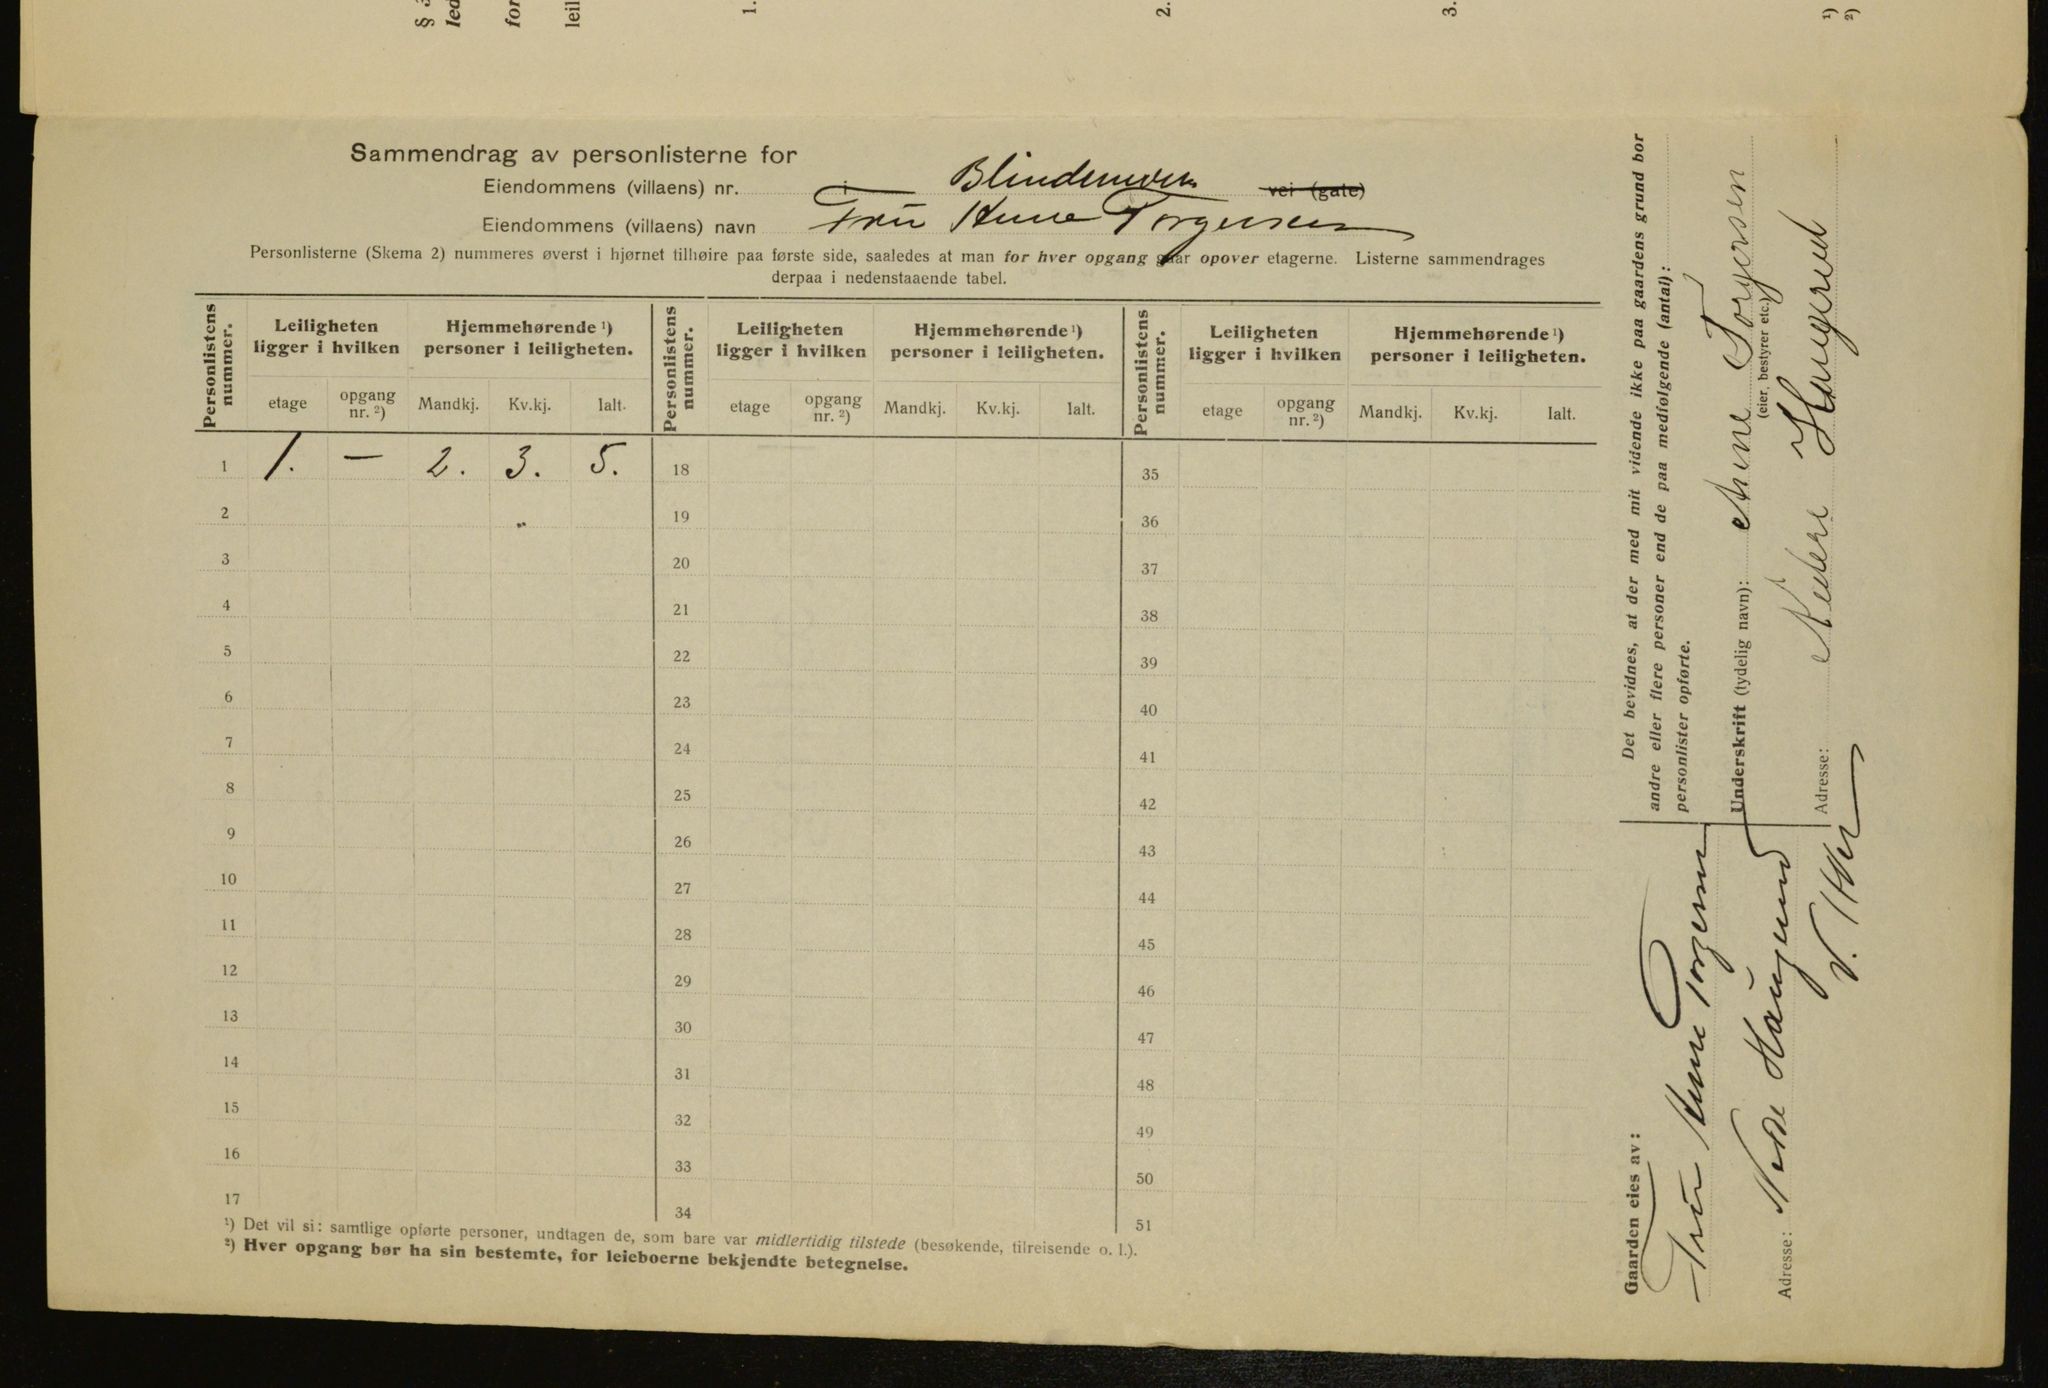 § 3
led
for
leil
1.
2.
3.
¹)
²)
Sammendrag av personlisterne for
Eiendommens (villaens) nr. i Blindernveien vei (gate)
Eiendommens (villaens) navn Fru Anne Torgersen
Personlisterne (Skema 2) nummeres øverst i hjørnet tilhøire paa første side, saaledes at man for hver opgang gaar opover etagerne. Listerne sammendrages
derpaa i nedenstaaende tabel.
Personlistens nummer. Leiligheten ligger i hvilken Hjemmehørende ¹) personer i leiligheten. Personlistens nummer. Leiligheten ligger i hvilken Hjemmehørende ¹) personer i leiligheten. Personlistens nummer. Leiligheten ligger i hvilken Hjemmehørende ¹) personer i leiligheten.
etage opgang nr. ²) Mandkj. Kv.kj. Ialt. etage opgang nr. ²) Mandkj. Kv.kj. Ialt. etage opgang nr. ²) Mandkj. Kv.kj. Ialt.
1 1. — 2. 3. 5. 18 35
2 " 19 36
3 20 37
4 21 38
5 22 39
6 23 40
7 24 41
8 25 42
9 26 43
10 27 44
11 28 45
12 29 46
13 30 47
14 31 48
15 32 49
16 33 50
17 34 51
¹) Det vil si: samtlige opførte personer, undtagen de, som bare var midlertidig tilstede (besøkende, tilreisende o. l.).
²) Hver opgang bør ha sin bestemte, for leieboerne bekjendte betegnelse.
Det bevidnes, at der med mit vidende ikke paa gaardens grund bor
andre eller flere personer end de paa medfølgende (antal):
personlister opførte.
Underskrift (tydelig navn): Anne Torgersen
(eier, bestyrer etc.)
Adresse: Nedre Haugerud
Gaarden eies av:
Fru Anne Torgersen
Adresse: Nedre Haugerud
V. Aker